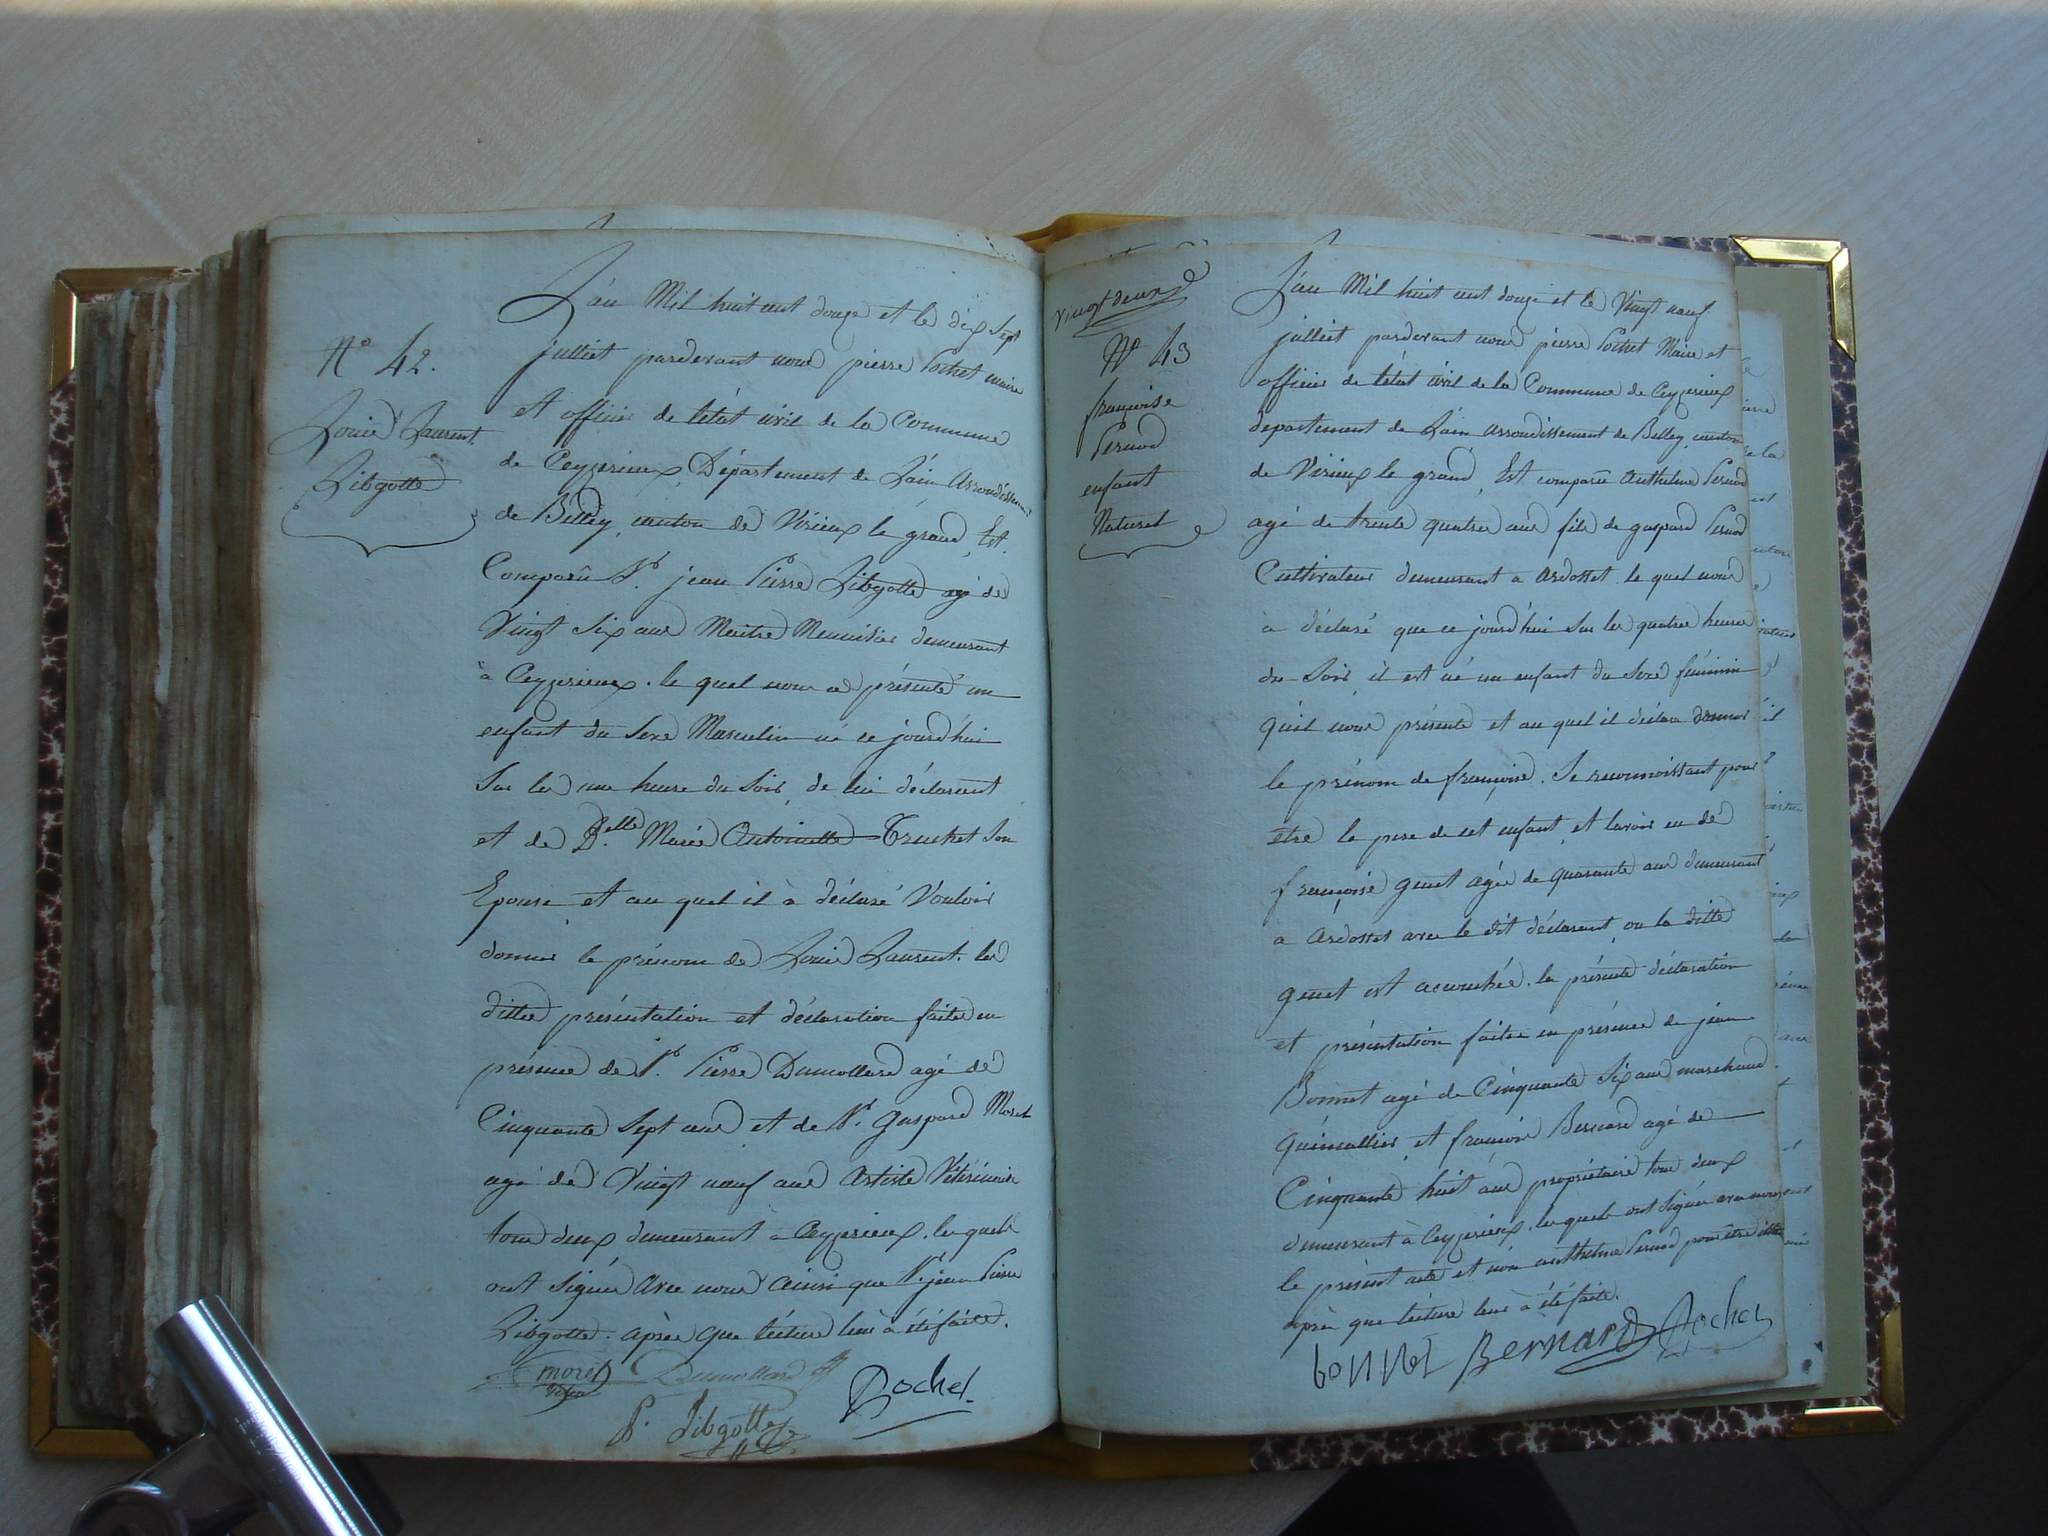 N° 42.
Louis Laurent
Libgotte
L'an Mil huit cent douze et le dix Sept
juilliet pardevant nous pierre Pochet maire
et officier de l'état civil de la Commune
de Ceyzerieux, Département de L'ain Arrondissement
de Belley, canton de Virieux le grand, Est
Comparû Sr. jean Pierre Libgotte agé de
Vingt Six ans Maitre Menuisier demeurant
à Ceyzerieux. le quel nous a présenté un
enfant du Sexe Masculin né ce jourd'hui
Sur les une heure du Soir, de lui déclarant
et de Delle. Marie Antoinette Truchet Son
Epouse et au quel il à déclaré Vouloir
donner le prénom de Louis Laurent. les
dittes présentation et déclaration faites en
présence de Sr. Pierre Dumollard agé de
Cinquante Sept ans et de Sr. gaspard Moret
agé de Vingt neuf ans Artiste Vétérinaire
tous deux demeurant à Ceyzerieux. les quels
ont Signés avec nous ainsi que Sr. jean Pierre
Libgotte. après que lécture leur à été faite.
moret Dumollard
P. Libgotte
Pochet
Vingt deux
N° 43
françoise
Pernod
enfant
Naturel
L'an Mil huit cent douze et le Vingt neuf
juilliet pardevant nous pierre Pochet Maire et
officier de l'état civil de la Commune de Ceyzerieux
département de L'ain arrondissement de Belley, canton
de Virieux le grand, Est comparû Anthelme Pernod
agé de trente quatre ans fils de gaspard Pernod
Cultivateur demeurant a Ardosset. le quel nous
a déclaré que ce jourd'hui Sur les quatre heures
du Soir, il est né un enfant du Sexe féminin
qu'il nous présente et au quel il déclare donner
le prénom de françoise. Se reconnoissant pour
être le père de cet enfant, et l'avoir eu de
françoise genet agée de quarante ans demeurant
a Ardosset avec le dit déclarant, ou la ditte
genet est accouchée. la présente déclaration
et présentation faites en présence de jean
Bonnet agé de Cinquante Six ans marchand
Quincallier, et françois Bernard agé de
Cinquante huit ans propriétaire tous deux
demeurant à Ceyzerieux. les quels ont Signés avec nous
le présent acte et non anthelme Pernod pour être
après que lécture leur à été faite.
bonnet Bernard Pochet